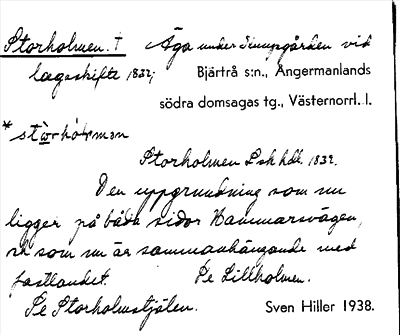 Storholmen. † Äga under Sinupgården vid
lagaskifte 1832;
Bjärtrå s:n., Ångermanlands
södra domsagas tg., Västernorrl. l.
* stòrhólmən
Storholmen Lsk hdl. 1832.
Den uppgrundning som nu
ligger på båda sidor Hammarsvägen,
ch som nu är sammanhängande med
fastlandet. Se Lillholmen.
Se Storholmstjälen.
Sven Hiller 1938.